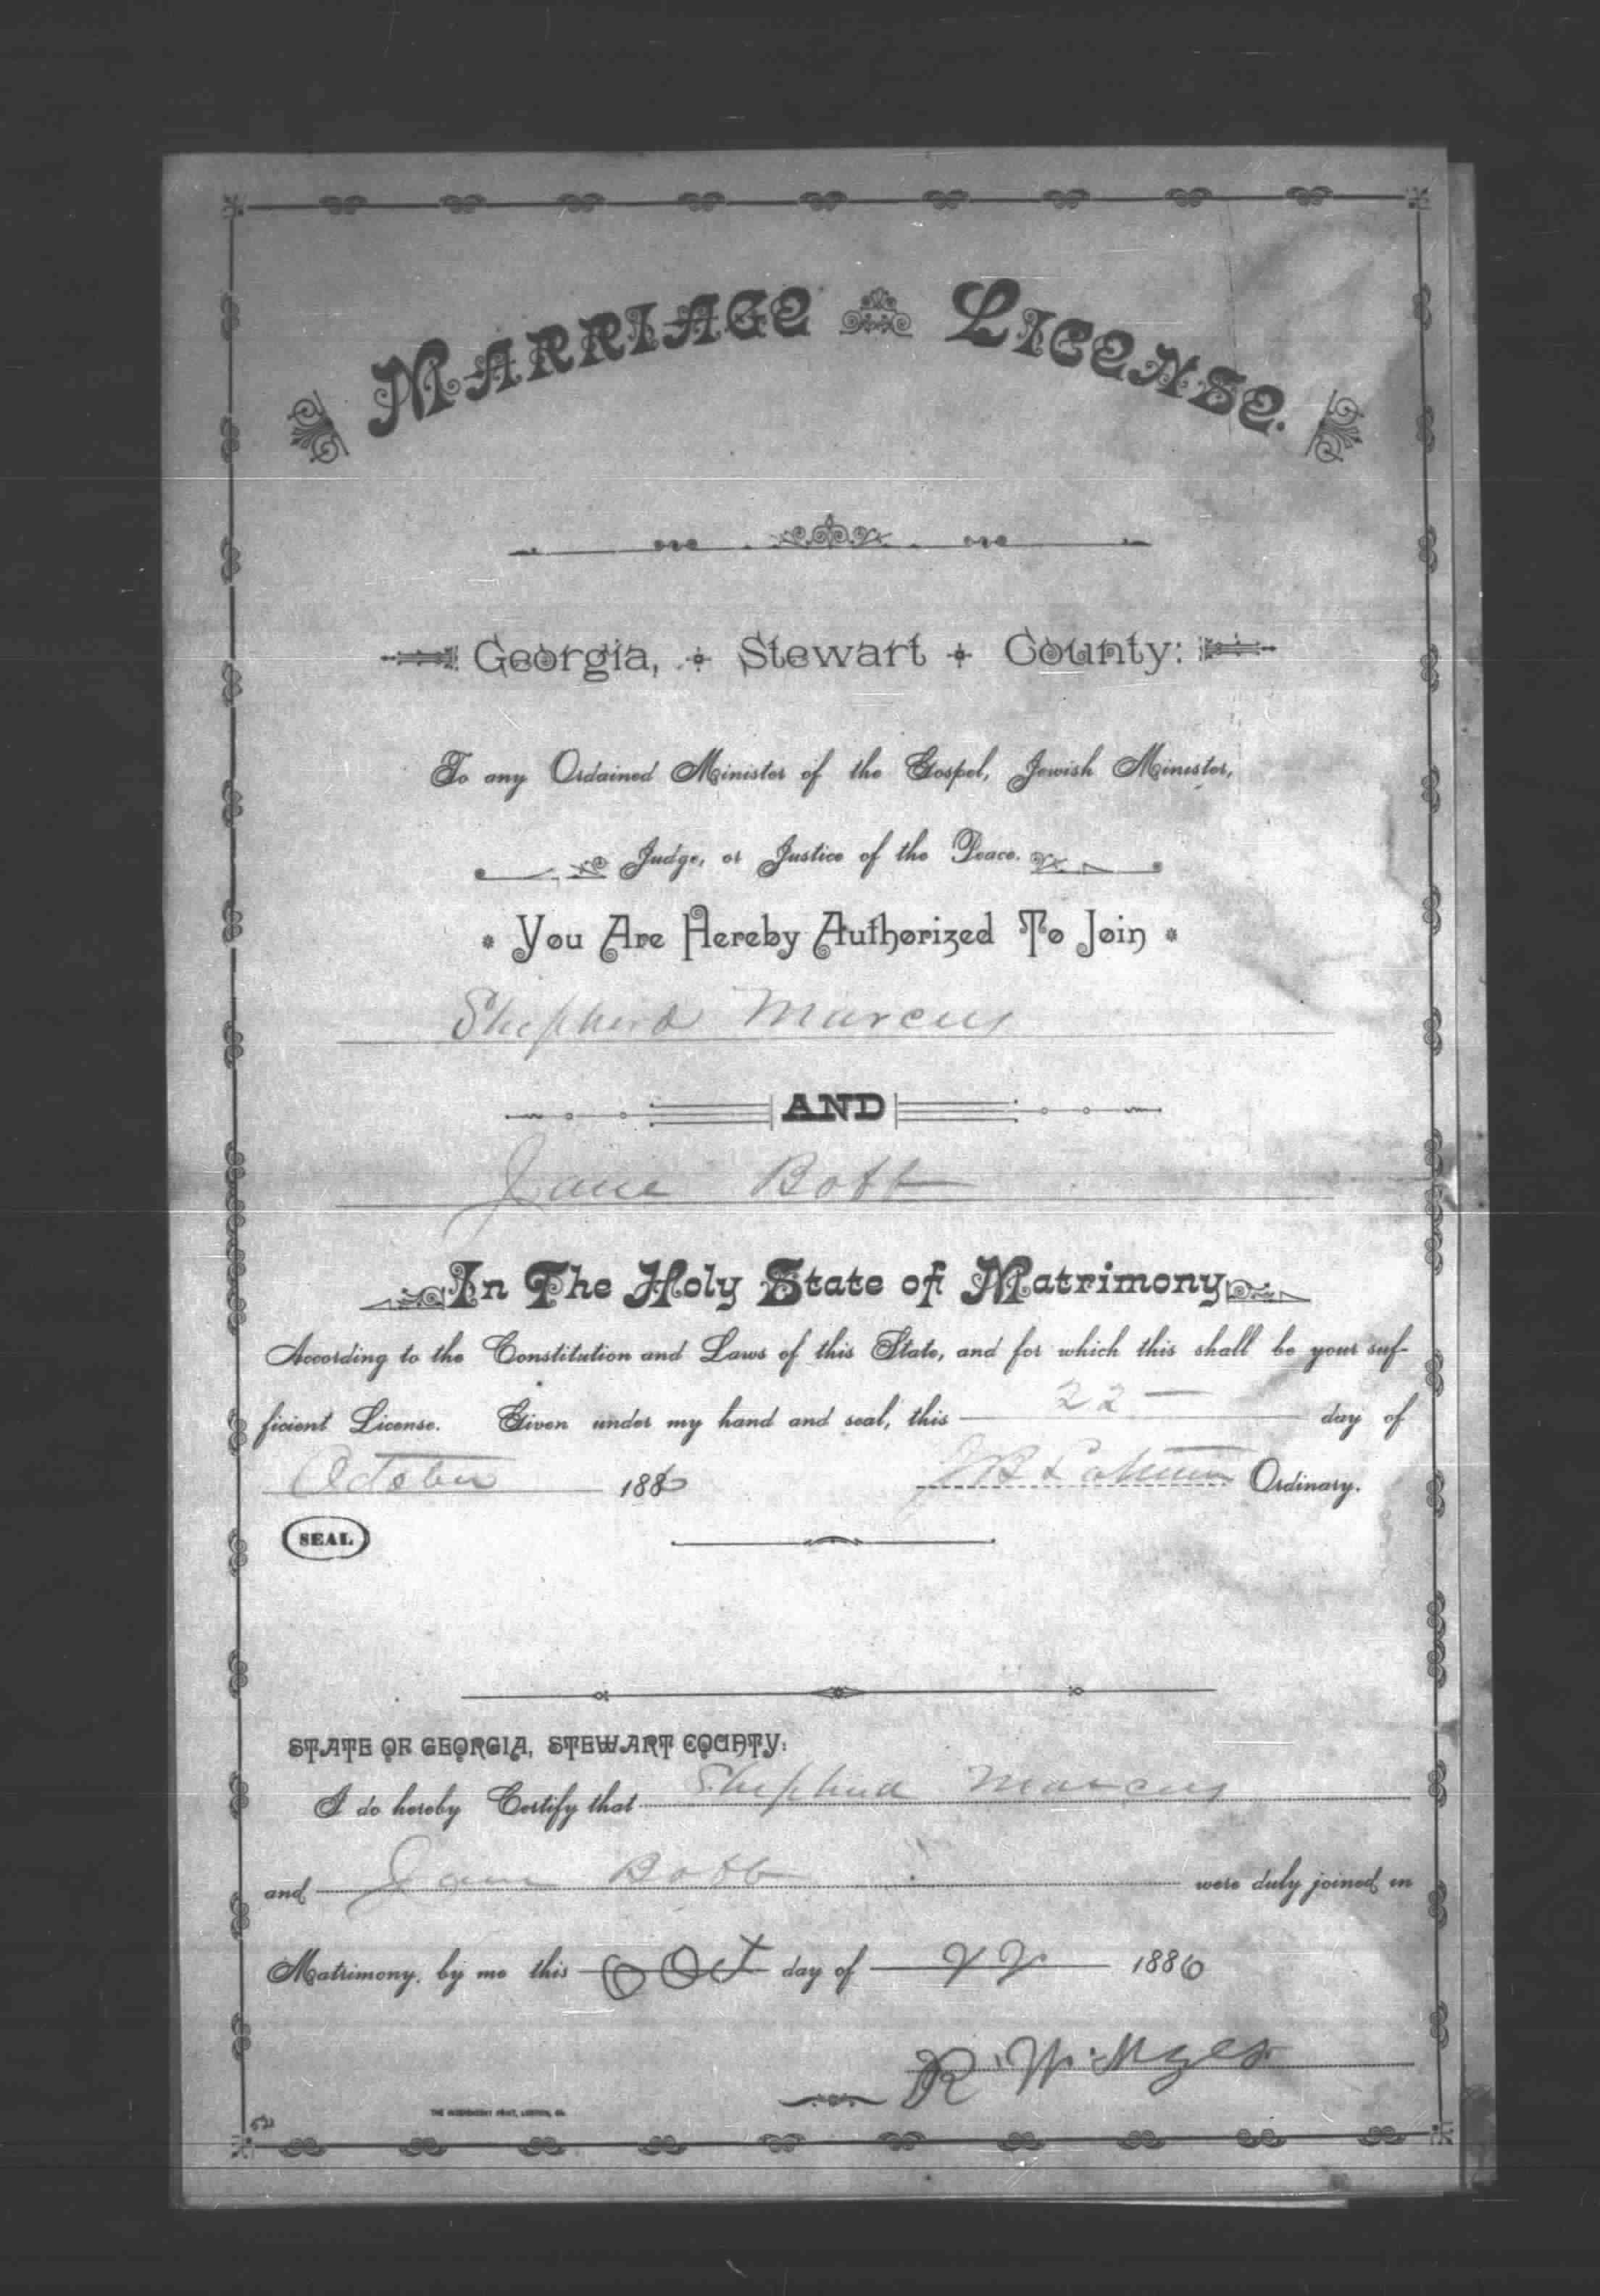 MARRIAGE LICENSE.
Georgia, Stewart County:
To any Ordained Minister of the Gospel, Jewish Minister,
Judge, or Justice of the Peace.
You Are Hereby Authorized To Join
Shepherd Marcus
AND
Jane Bott
In The Holy State of Matrimony
According to the Constitution and Laws of this State, and for which this shall be your suf-
ficient License. Given under my hand and seal, this 22 day of
October 1886 J B Ordinary.
SEAL
STATE OF GEORGIA, STEWART COUNTY:
I do hereby Certify that Shepherd Marcus
and Jane Bott were duly joined in
Matrimony, by me this Oct day of 22 1886
R. W.